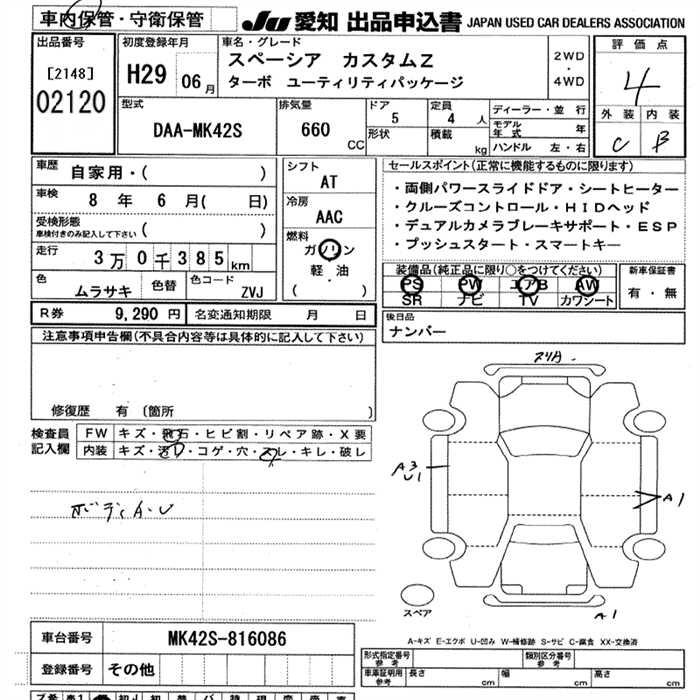 車内保管・守衛保管
JU 愛知 出品申込書 JAPAN USED CAR DEALERS ASSOCIATION
出品番号
[2148]
02120
初度登録年月
H29 06月
車名・グレード
スペーシア カスタムZ
ターボ ユーティリティパッケージ
2WD
・
4WD
評価点
4
外装 内装
C B
型式
DAA-MK42S
排気量
660 CC
ドア
5
形状
定員
4 人
積載 kg
ディーラー・並行
モデル
年式 年
ハンドル 左・右
車歴 自家用・( )
車検 8年 6月( 日)
受検形態
車検付きのみ記入して下さい ( )
走行 3万0千385km
色 ムラサキ 色替 色コード ZVJ
シフト
AT
冷房
AAC
燃料
ガソリン
軽・油
( )
セールスポイント(正常に機能するものに限ります)
・両側パワースライドドア・シートヒーター
・クルーズコントロール・HIDヘッド
・デュアルカメラブレーキサポート・ESP
・プッシュスタート・スマートキー
装備品(純正品に限り○をつけてください)
PS PW エアB AW
SR ナビ TV カワシート
新車保証書
有・無
R券 9,290円 名変通知期限 月 日
後日品
ナンバー
注意事項申告欄(不具合内容等は具体的に記入して下さい)
修復歴 有(箇所 )
検査員
記入欄
FW キズ・飛石・ヒビ割・リペア跡・X要
内装 キズ・汚れ・コゲ・穴・スレ・キレ・破レ
ボディA・U
スリA
A3
U1
A1
スペア
A1
A-キズ E-エクボ U-凹み W-補修跡 S-サビ C-腐食 XX-交換済
車台番号 MK42S-816086
登録番号 その他
形式指定番号
参考
類別区分番号
参考
車庫証明用
参考
長さ cm 幅 cm 高さ cm